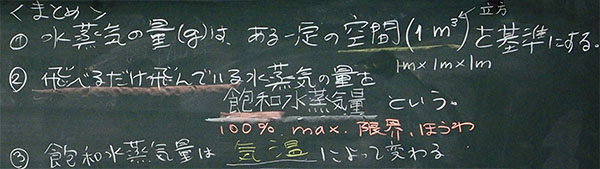 <まとめ>
立方
① 水蒸気の量(g)は、ある一定の空間(1m³)を基準にする。
1m×1m×1m
② 飛べるだけ飛んでいる水蒸気の量を
飽和水蒸気量 という。
100%. max. 限界、ほうわ
③ 飽和水蒸気量は 気温 によって変わる